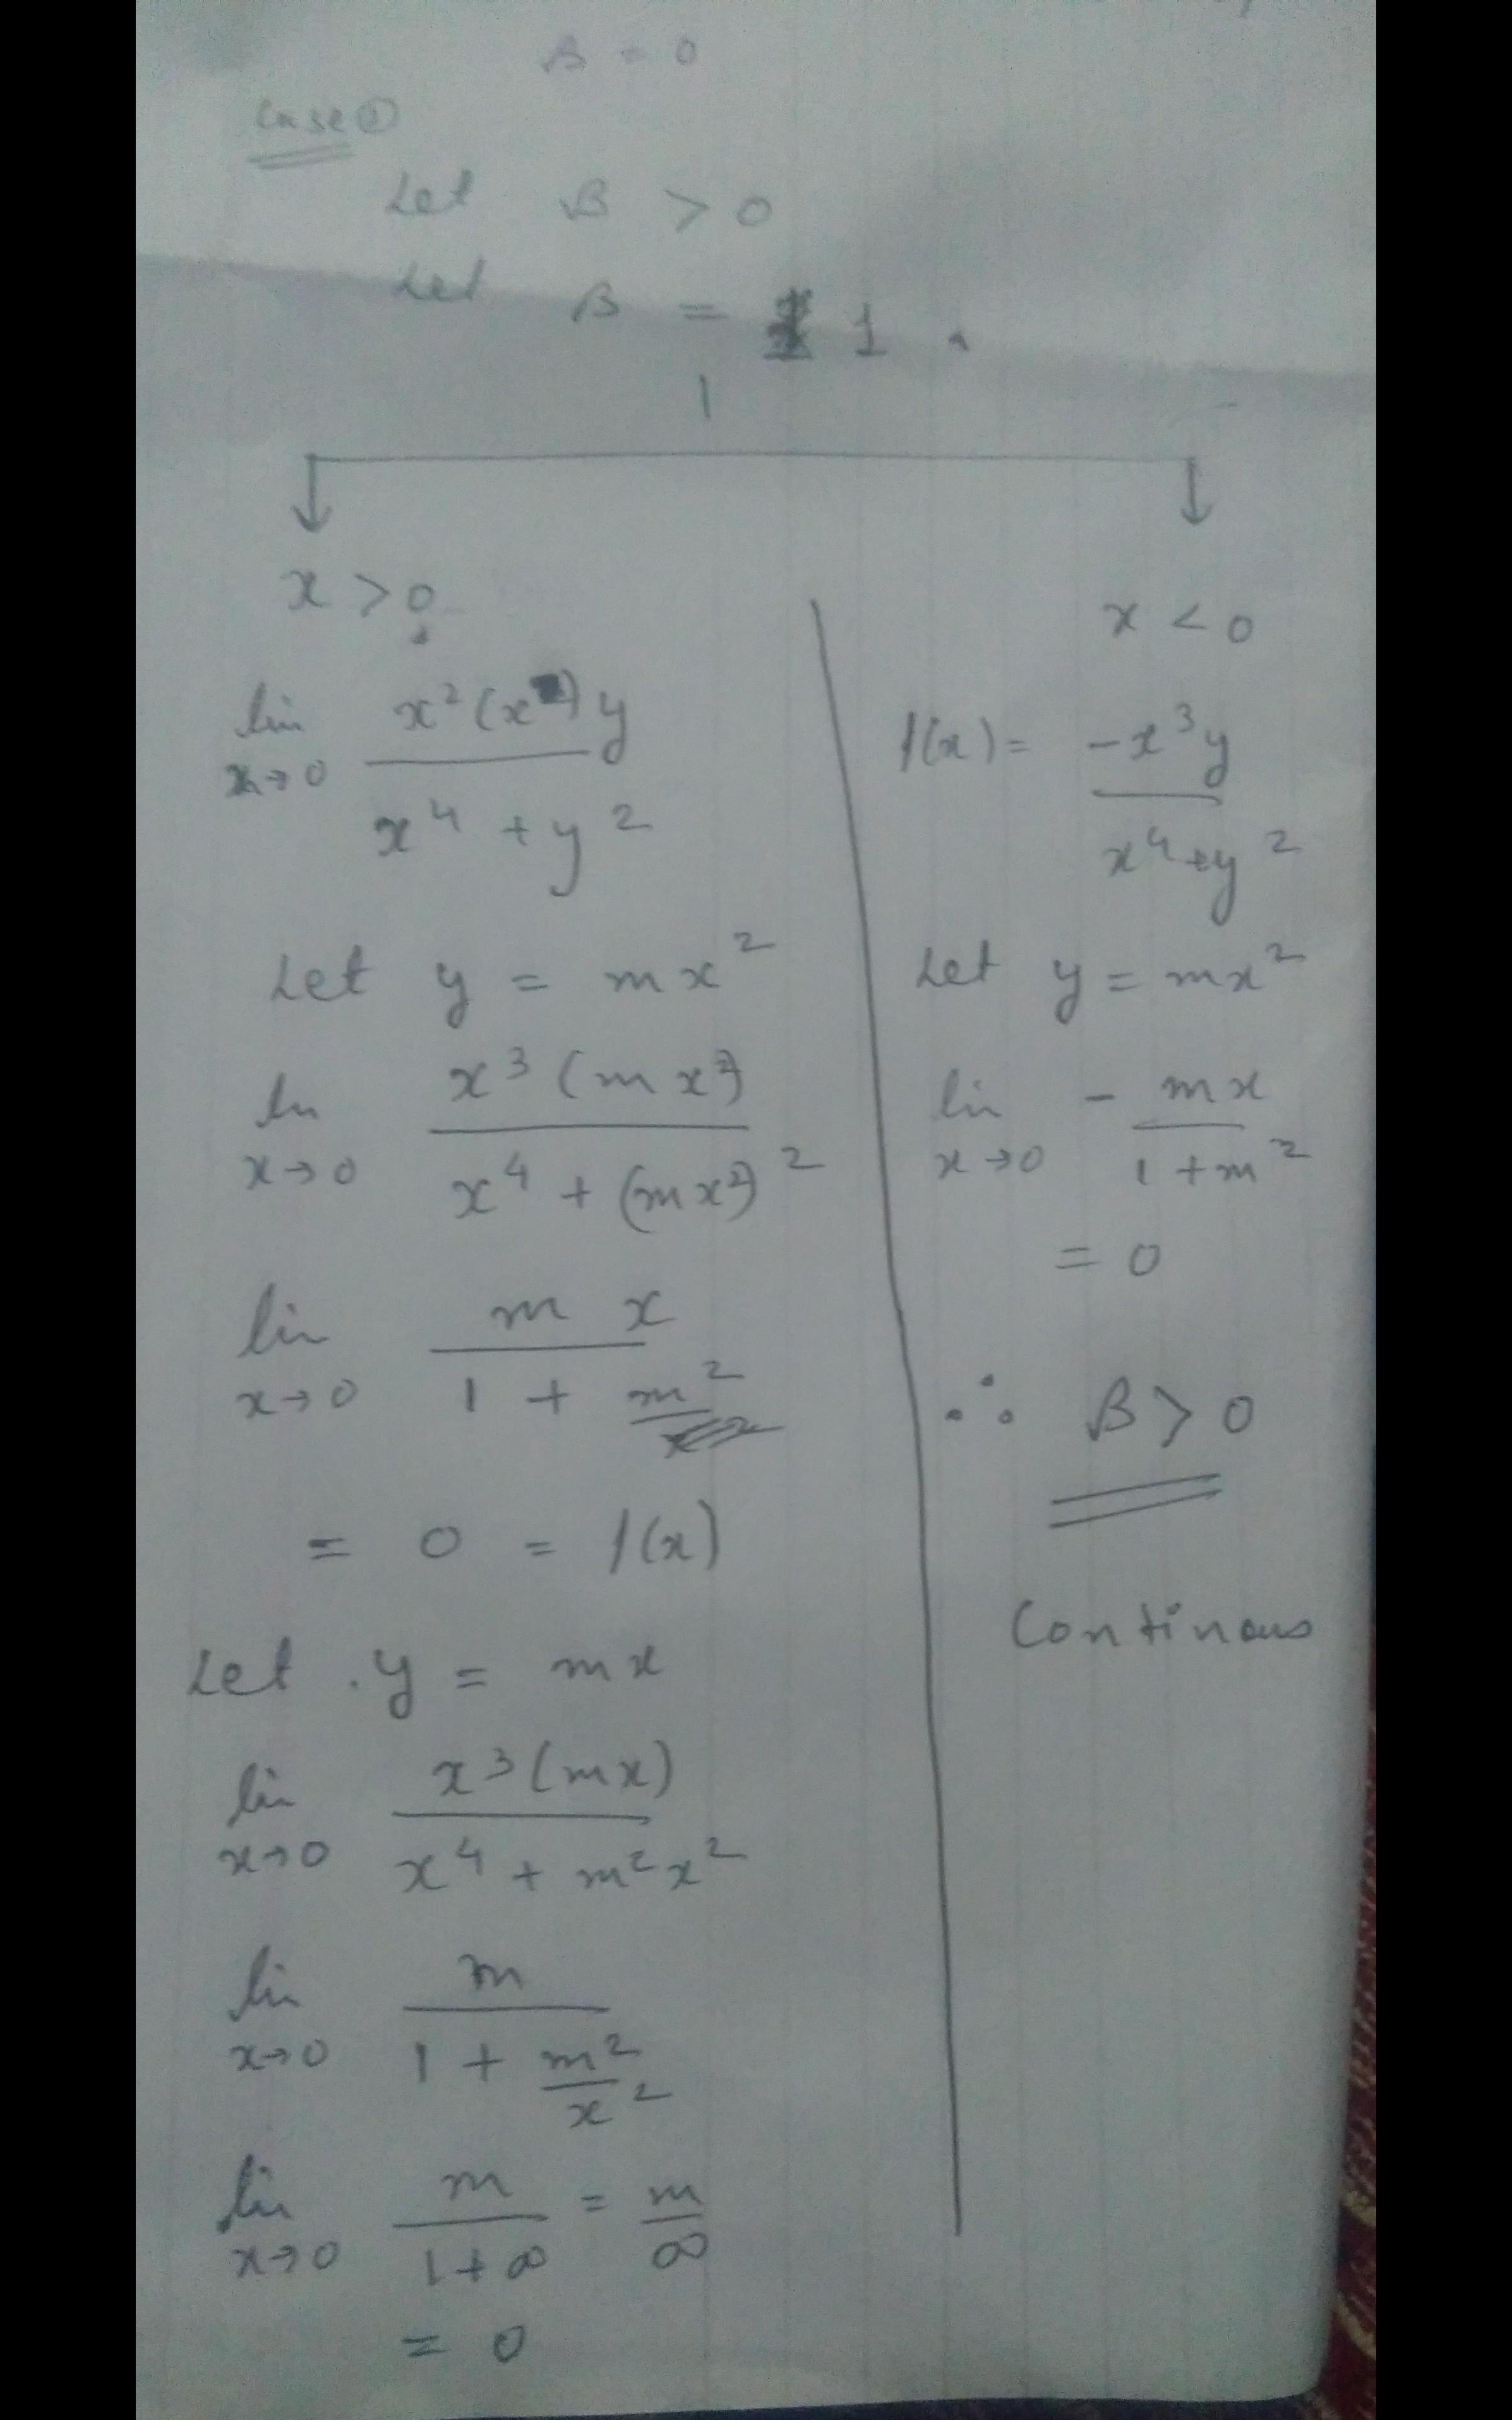 β = 0
Case ②
Let β > 0
Let β = 1 .
x > 0
lim x→0 x²(x)y / x⁴ + y²
Let y = mx²
lin x→0 x³(mx²) / x⁴ + (mx²)²
lin x→0 m x / 1 + m²
= 0 = f(x)
Let . y = mx
lin x→0 x³(mx) / x⁴ + m²x²
lin x→0 m / 1 + m²/x²
lin x→0 m / 1 + ∞ = m / ∞
= 0
x < 0
f(x) = -x³y / x⁴+y²
Let y = mx²
lin x→0 - mx / 1 + m²
= 0
∴ β > 0
Continous